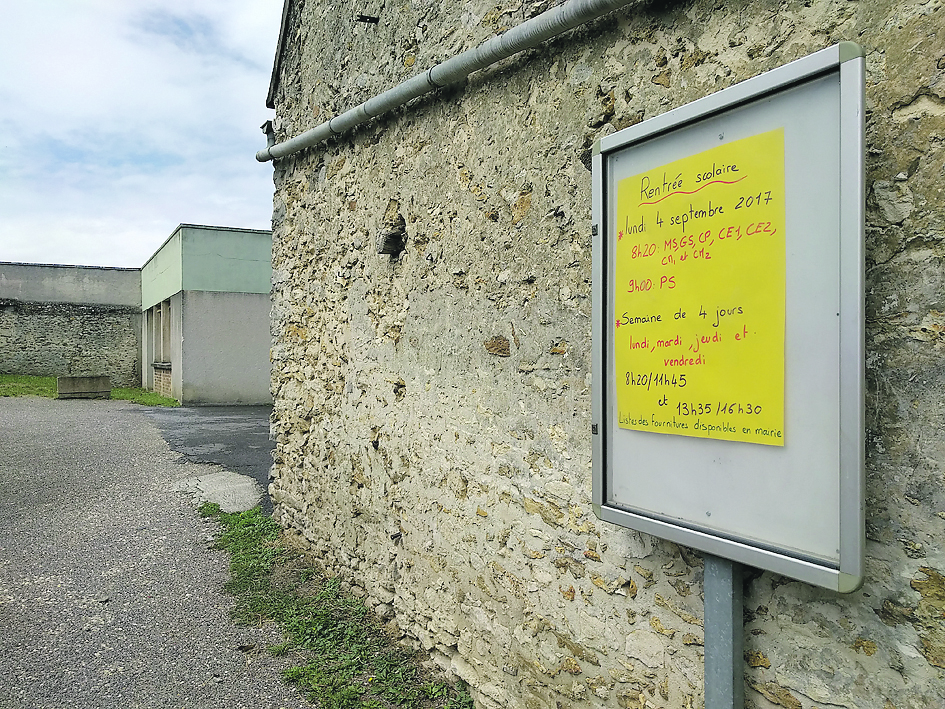 Rentrée scolaire
* lundi 4 septembre 2017
8h20: MS, GS, CP, CE1, CE2,
CM1 et CM2
9h00: PS
* Semaine de 4 jours
lundi, mardi, jeudi et
vendredi
8h20/11h45
et
13h35/16h30
Listes des fournitures disponibles en mairie